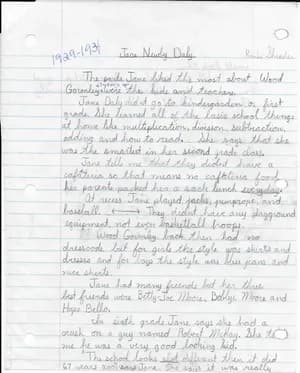 1929-1931
Jane Newly Daly
The people Jane liked the most about Wood
Gormley were the kids and teachers.
Jane Daly did not go to kindergarden or first
grade. She learned all of the basic school things
at home like multiplication, division, subtraction,
adding and how to read. She says that she
was the smartest in her second grade class.
Jane tells me that they didn't have a
cafiteria so that means no cafiteria food,
her parents packed her a sack lunch everyday.
At recess Jane played jacks, jumprope, and
baseball. They didnt have any playground
equipment, not even basketball hoops.
Wood Gormley back then had no
dresscode but for girls the style was skirts and
dresses and for boys the style was blue jeans and
nice shirts.
Jane had many friends but her three
best friends were Betty Jo Moore, Dallys Moore and
Hope Bello.
In sixth grade Jane says she had a
crush on a guy named Robert McKay. She told
me he was a very good looking kid.
The school looks alot different then it did
67 years ago says Jane. She said it was really